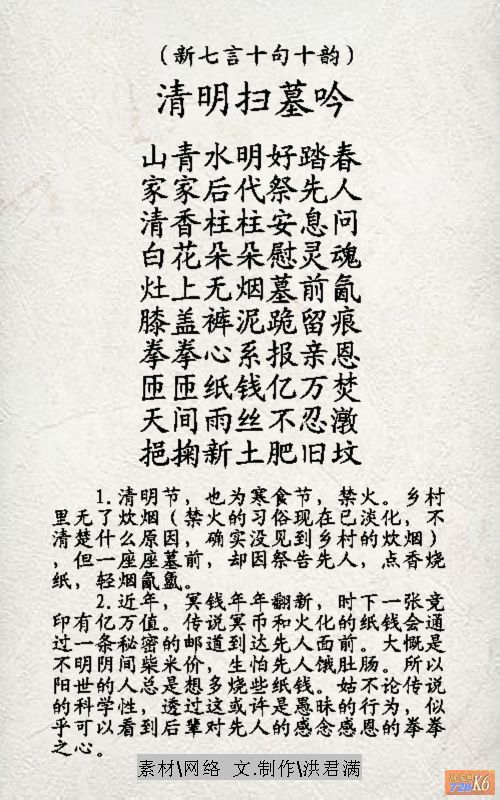 （新七言十句十韵）
清明扫墓吟
山青水明好踏春
家家后代祭先人
清香柱柱安息问
白花朵朵慰灵魂
灶上无烟墓前氤
膝盖裤泥跪留痕
拳拳心系报亲恩
匝匝纸钱亿万焚
天间雨丝不忍潵
挹掬新土肥旧坟
1.清明节，也为寒食节，禁火。乡村
里无了炊烟（禁火的习俗现在已淡化，不
清楚什么原因，确实没见到乡村的炊烟）
，但一座座墓前，却因祭告先人，点香烧
纸，轻烟氤氲。
2.近年，冥钱年年翻新，时下一张竟
印有亿万值。传说冥币和火化的纸钱会通
过一条秘密的邮道到达先人面前。大慨是
不明阴间柴米价，生怕先人饿肚肠。所以
阳世的人总是想多烧些纸钱。姑不论传说
的科学性，透过这或许是愚昧的行为，似
乎可以看到后辈对先人的感念感恩的拳拳
之心。
素材\网络 文.制作\洪君满
728 K6